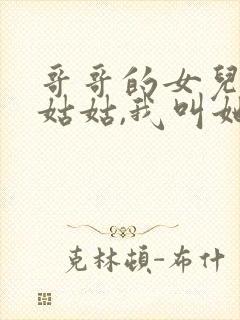 哥哥的女兒
姑姑,我叫她
克林頓-布什